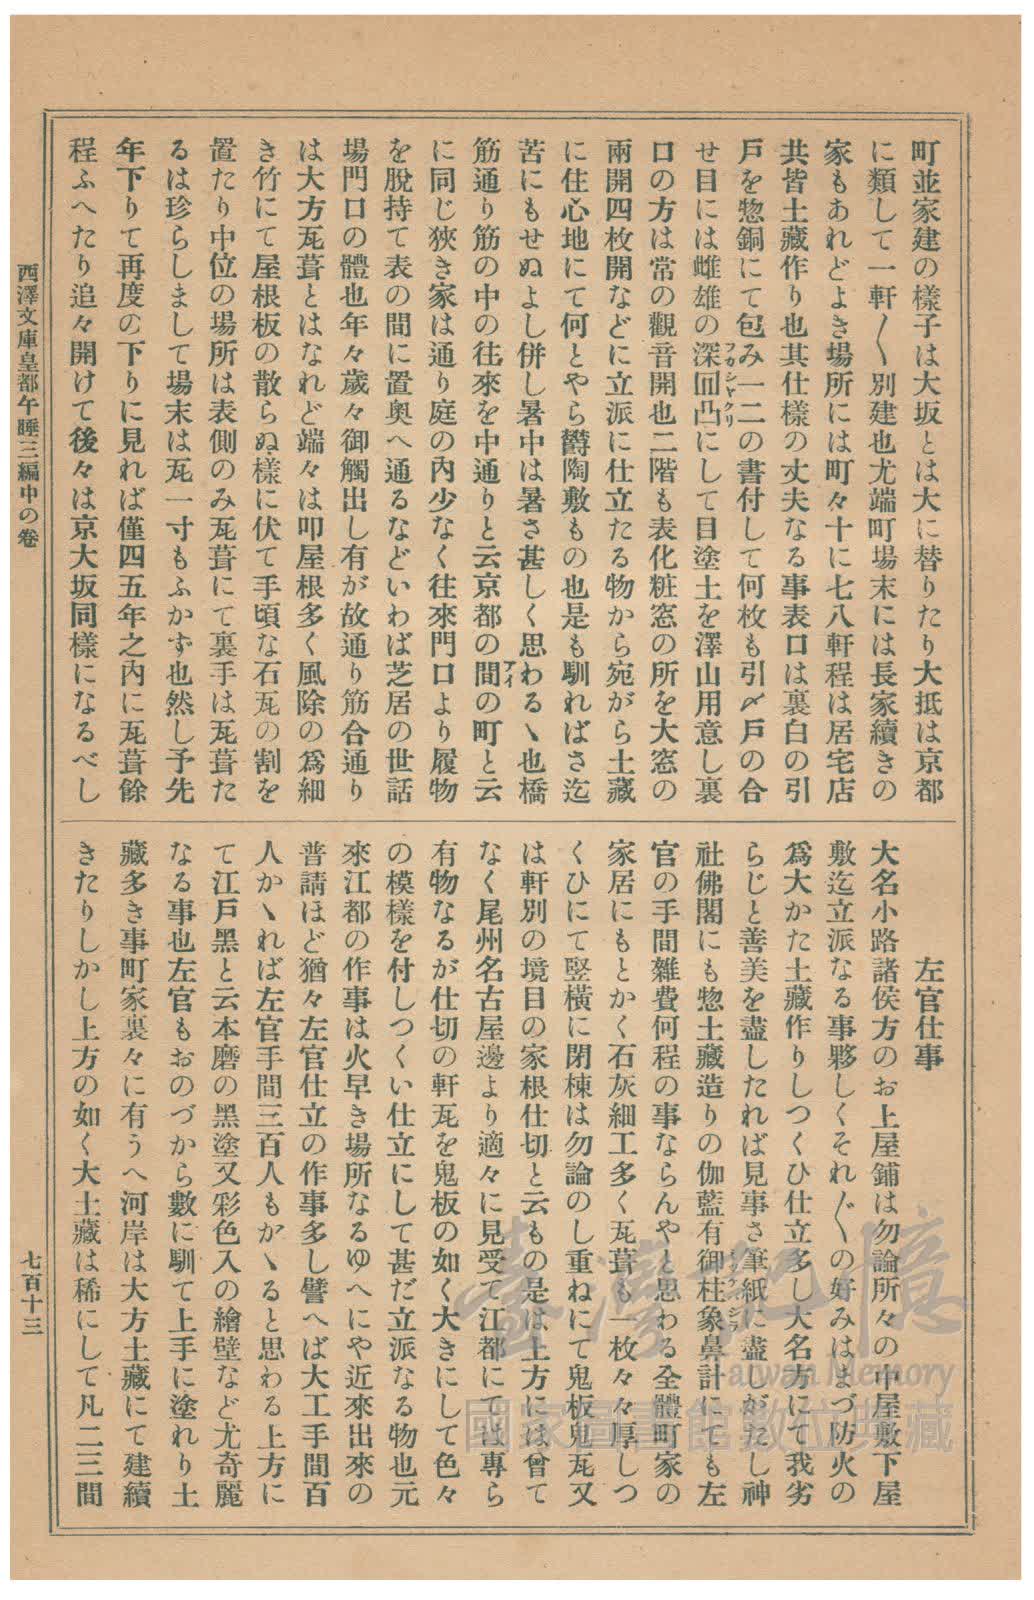 町並家建の樣子は大坂とは大に替りたり大抵は京都
に類して一軒〳〵別建也尤端町場末には長家續きの
家もあれどよき場所には町々十に七八軒程は居宅店
共皆土藏作り也其仕樣の丈夫なる事表口は裏白の引
戸を惣銅にて包み一二の書付して何枚も引〆戸の合
せ目には雌雄の深凹凸にして目塗土を澤山用意し裏
口の方は常の觀音開也二階も表化粧窓の所を大窓の
兩開四枚開などに立派に仕立たる物から宛がら土藏
に住心地にて何とやら欝陶敷もの也是も馴ればさ迄
苦にもせぬよし併し暑中は暑さ甚しく思わるヽ也橋
筋通り筋の中の往來を中通りと云京都の間の町と云
に同じ狹き家は通り庭の內少なく往來門口より履物
を脫持て表の間に置奧へ通るなどいわば芝居の世話
場門口の體也年々歲々御觸出し有が故通り筋合通り
は大方瓦葺とはなれど端々は叩屋根多く風除の爲細
き竹にて屋根板の散らぬ樣に伏て手頃な石瓦の割を
置たり中位の場所は表側のみ瓦葺にて裏手は瓦葺た
るは珍らしまして場末は瓦一寸もふかず也然し予先
年下りて再度の下りに見れば僅四五年之內に瓦葺餘
程ふへたり追々開けて後々は京大坂同樣になるべし
左官仕事
大名小路諸侯方のお上屋鋪は勿論所々の中屋敷下屋
敷迄立派なる事夥しくそれ〴〵の好みはまづ防火の
爲大かた土藏作りしつくひ仕立多し大名方にて我劣
らじと善美を盡したれば見事さ筆紙に盡しがたし神
社佛閣にも惣土藏造りの伽藍有御柱象鼻計にても左
官の手間雜費何程の事ならんやと思わる全體町家の
家居にもとかく石灰細工多く瓦葺も一枚々々厚しつ
くひにて竪橫に閉棟は勿論のし重ねにて鬼板鬼瓦又
は軒別の境目の家根仕切と云もの是は上方には曾て
なく尾州名古屋邊より適々に見受て江都にては專ら
有物なるが仕切の軒瓦を鬼板の如く大きにして色々
の模樣を付しつくい仕立にして甚だ立派なる物也元
來江都の作事は火早き場所なるゆへにや近來出來の
普請ほど猶々左官仕立の作事多し譬へば大工手間百
人かヽれば左官手間三百人もかヽると思わる上方に
て江戸黑と云本磨の黑塗又彩色入の繪壁など尤奇麗
なる事也左官もおのづから數に馴て上手に塗れり土
藏多き事町家裏々に有うへ河岸は大方土藏にて建續
きたりしかし上方の如く大土藏は稀にして凡二三間
西澤文庫皇都午睡三編中の卷
七百十三
臺灣記憶
Taiwan Memory
國家圖書館數位典藏